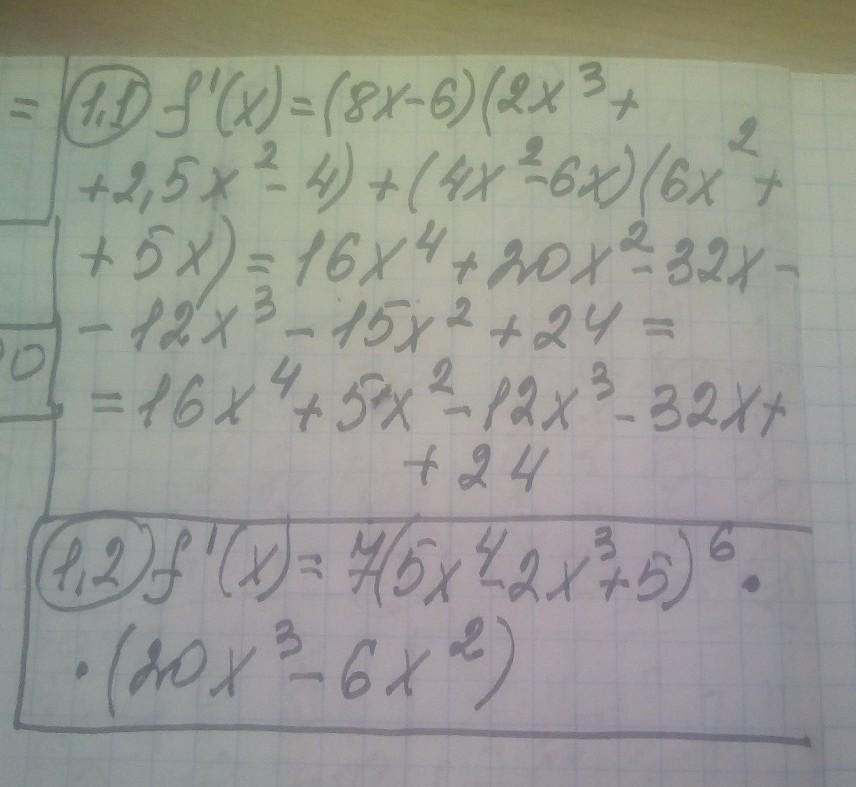 = 1,1) f'(x)=(8x-6)(2x³+
+2,5x²-4)+(4x²-6x)(6x²+
+5x)=16x⁴+20x²-32x-
-12x³-15x²+24=
=16x⁴+5x²-12x³-32x+
+24
1,2) f'(x)=7(5x⁴-2x³+5)⁶·
·(20x³-6x²)